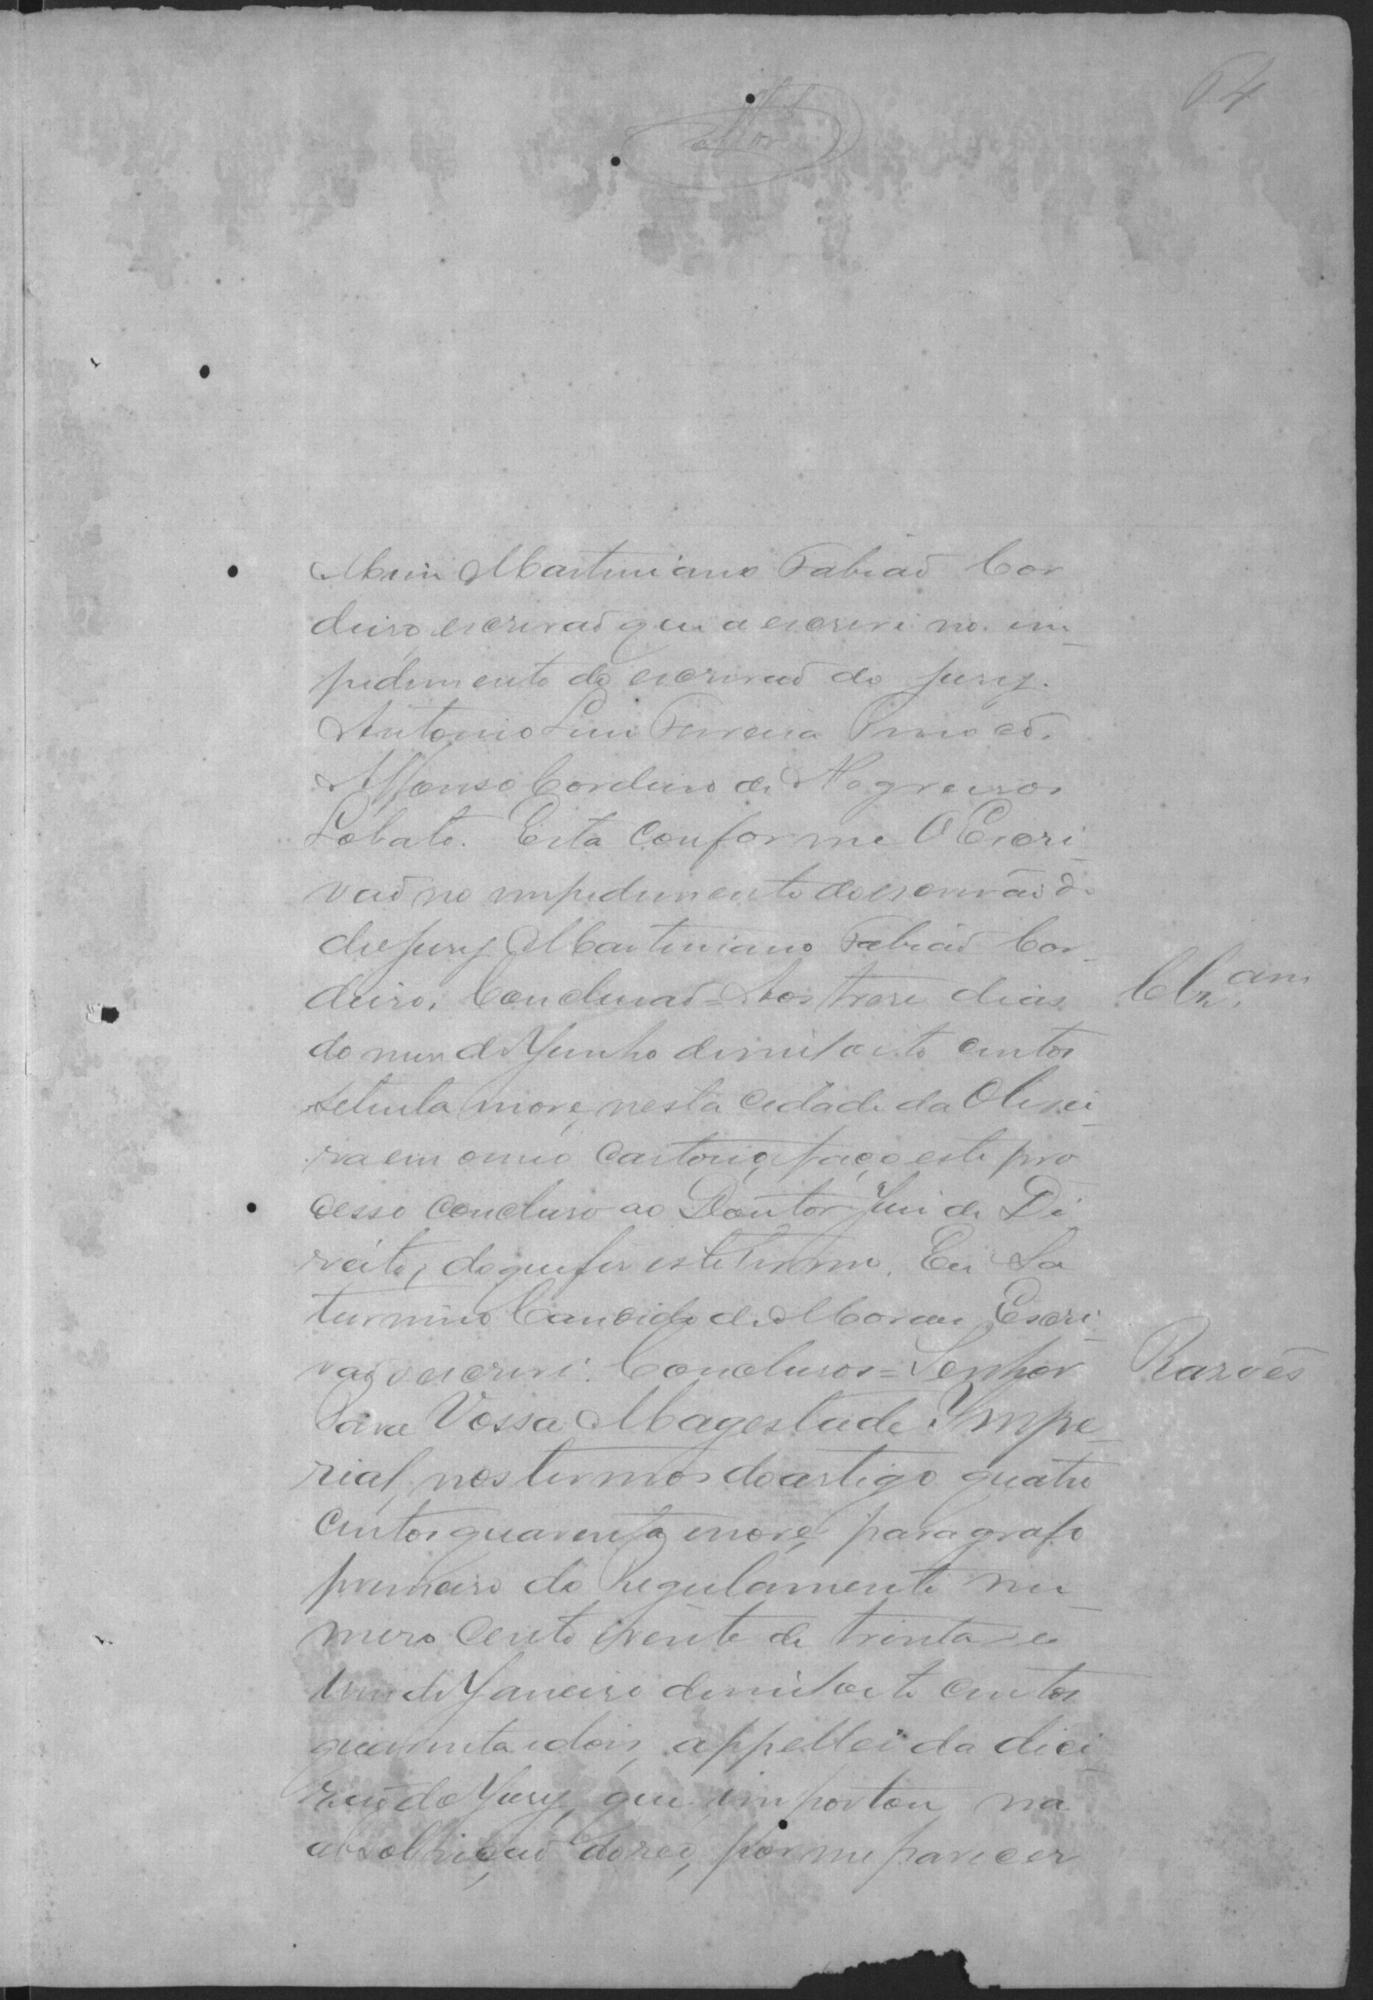 64
Mim Martiniano Fabiaõ Cor
deiro, escrivaõ que a escrevi no im_
pedimento do escrivaõ do jury.
Antonio Luis Ferreira
Affonso Cordeiro de Negreiros
Lobato. Está conforme O Escri
vaõ no impedimento do escrivão do
do jury Martiniano Fabiaõ Cor_
deiro. Conclusaõ = Aos trese dias
Clz.am
do mes de Junho de mil oito centos
setenta e nove, nesta Cidade da Olivei_
ra em o meo Cartorio, faço este pro
cesso concluso ao Doutor Juis de Di
reito, do que fis este termo. Eu Sa
turnino Candido de Moraes Escri_
vaõ o escrevi. Conclusos = Senhor
Razoẽs
Para Vossa Magestade Impe_
rial, nos termos do artigo quatro
centos quarenta e nove, paragrafo
primeiro do Regulamento nu_
mero Cento e vente de trinta e
um de Janeiro de mil oito centos
quarenta e dois, appellei da deci_
zaõ do Jury, que importou na
absolviçaõ do reo, por me parecer